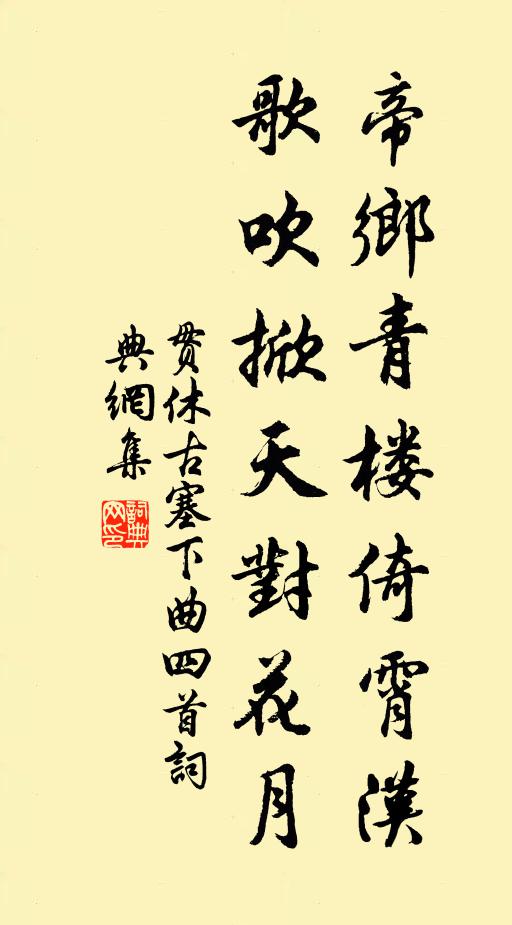 帝鄉青楼倚霄漢
歌吹掀天對花月
貫休古塞下曲四首詞
典網集
詞典网印